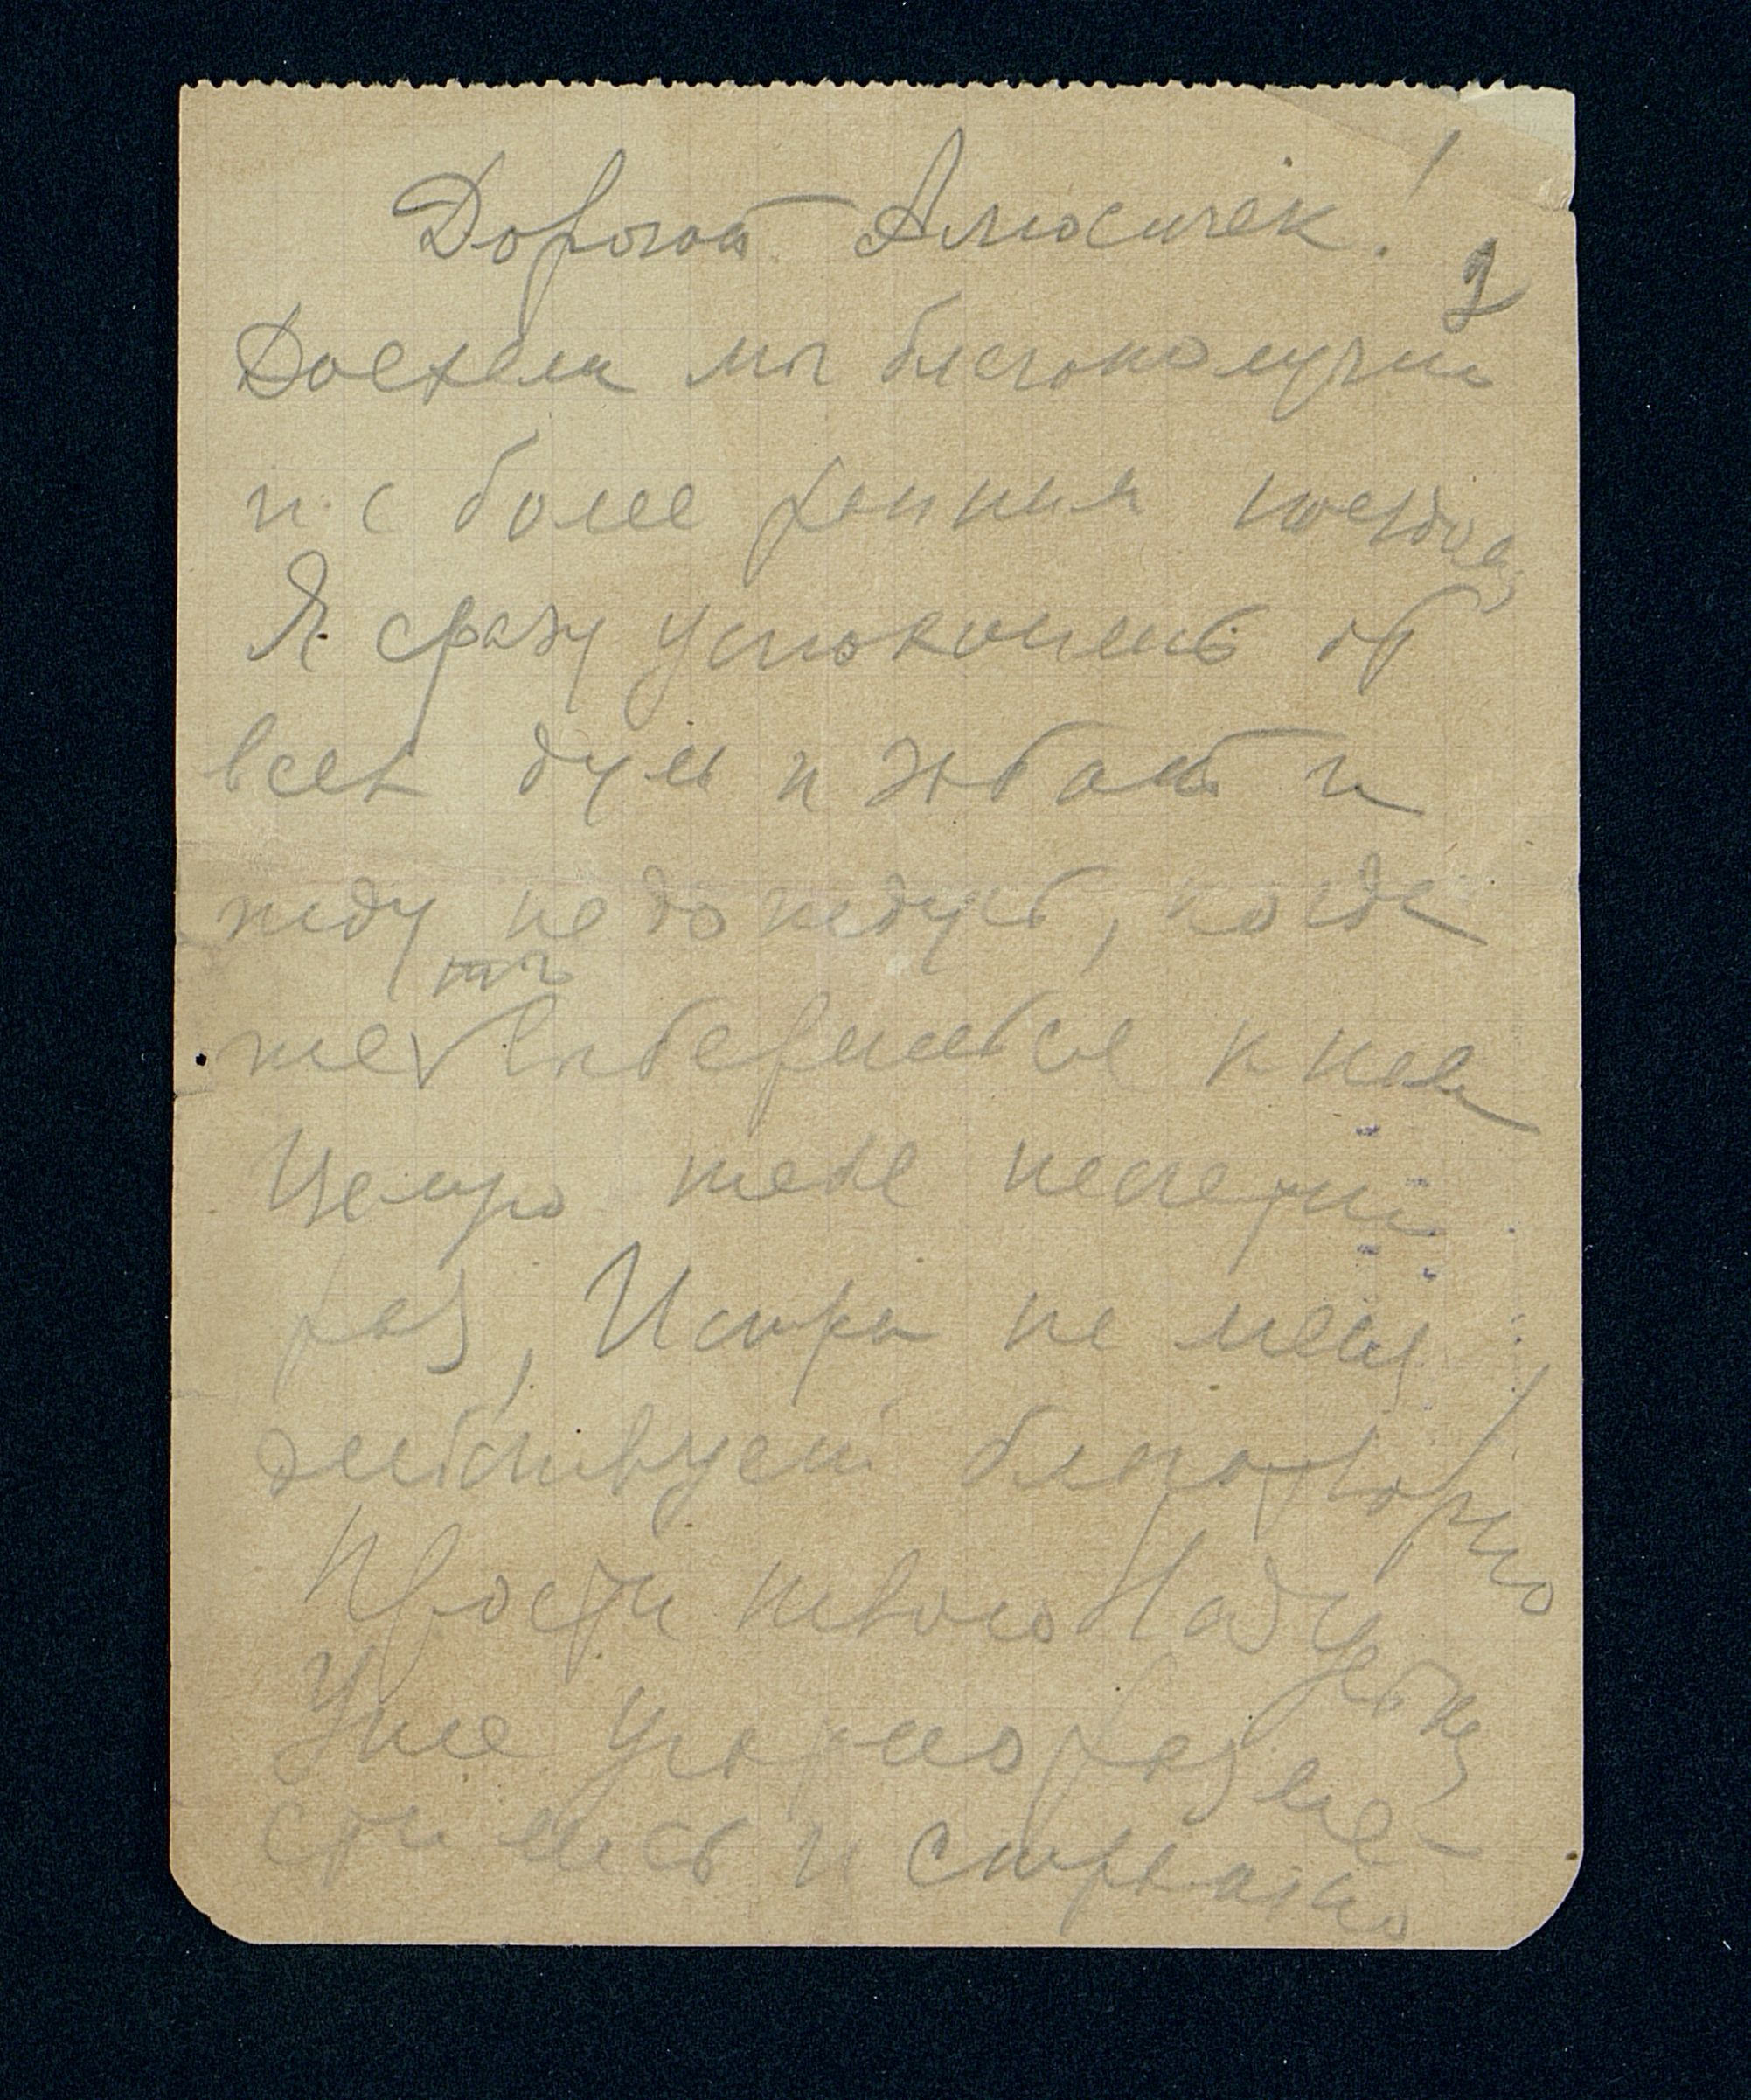 Дорогой Алюсичек!
2
Доехали мы благополучно
и с более ранним поездом
Я сразу успокоилась от
всех дум и забот и
жду не дождусь, когда
ты
же выберешься к нам
Целую тебя несчетн.
раз, Истра на меня
действует благотворно
Прости твою Надусеньку
Уже удобно разме-
стились и страшно